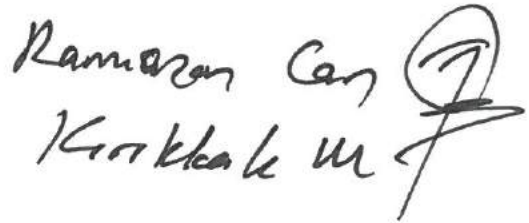 Ramazan Can
Kırıkkale M